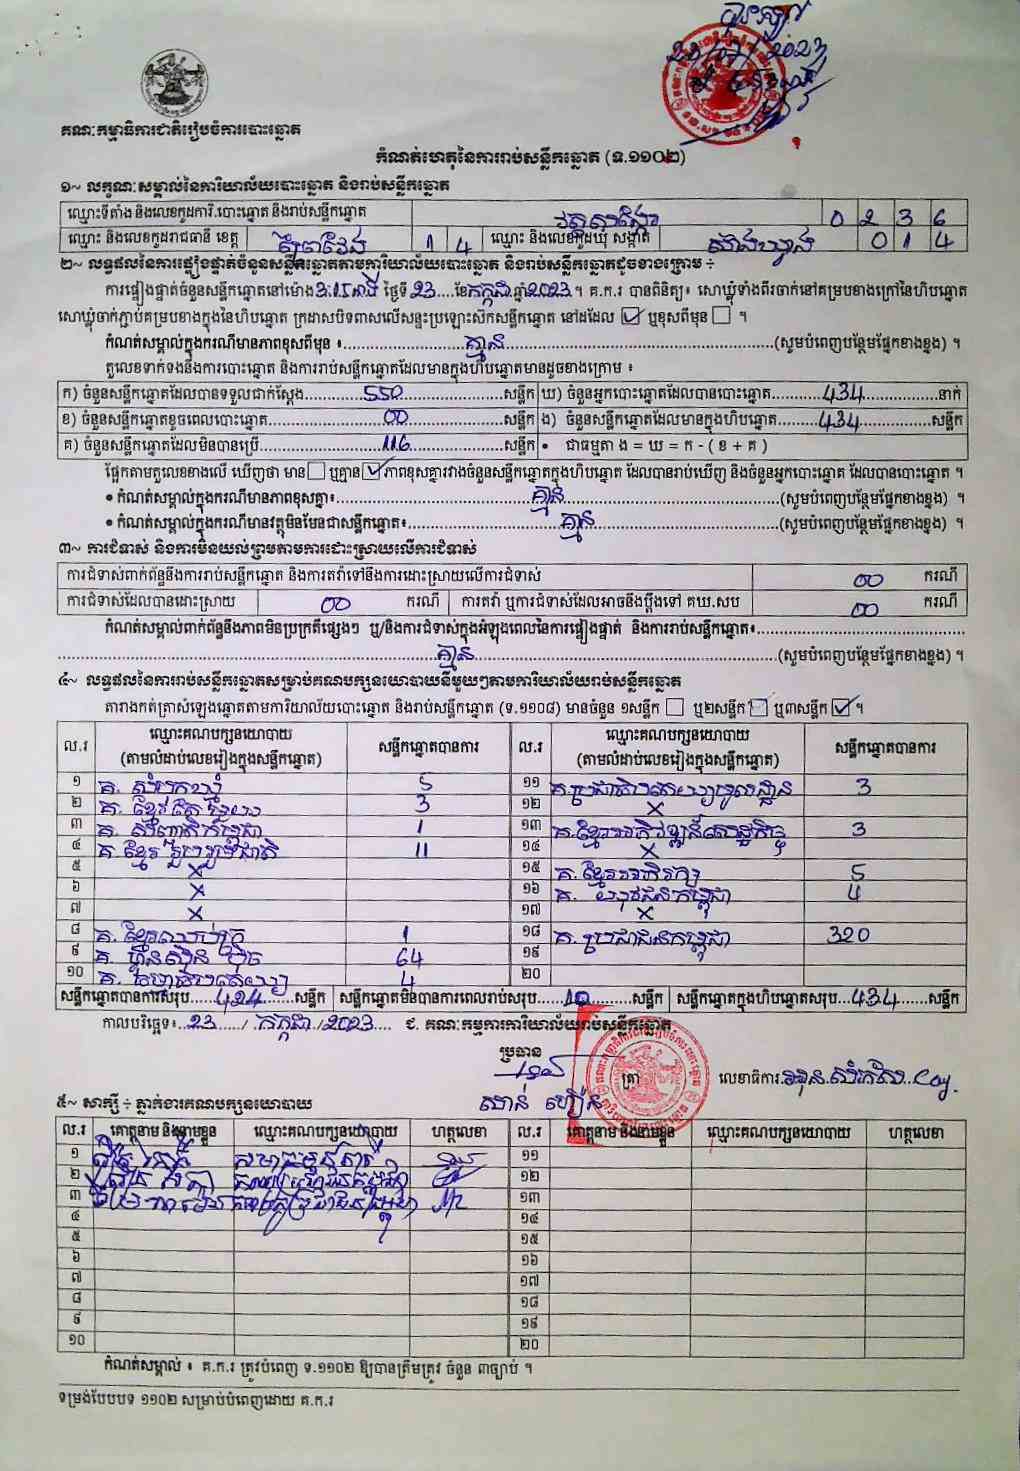 ២៣/០៧/2023
គណៈកម្មាធិការជាតិរៀបចំការបោះឆ្នោត
កំណត់ហេតុនៃការរាប់សន្លឹកឆ្នោត (ទ.១១០២)
១~ លក្ខណៈសម្គាល់នៃការិយាល័យបោះឆ្នោត និងរាប់សន្លឹកឆ្នោត
ឈ្មោះទីតាំង និងលេខកូដការិ.បោះឆ្នោត និងរាប់សន្លឹកឆ្នោត 0 2 3 6
ឈ្មោះ និងលេខកូដរាជធានី ខេត្ត ព្រៃវែង 1 4 ឈ្មោះ និងលេខកូដឃុំ សង្កាត់ 0 1 4
២~ លទ្ធផលនៃការផ្ទៀងផ្ទាត់ចំនួនសន្លឹកឆ្នោតតាមការិយាល័យបោះឆ្នោត និងរាប់សន្លឹកឆ្នោតដូចខាងក្រោម ÷
ការផ្ទៀងផ្ទាត់ចំនួនសន្លឹកឆ្នោតនៅម៉ោង ថ្ងៃទី 23 ខែ កក្កដា ឆ្នាំ 2023 ។ គ.ក.រ បានពិនិត្យ៖ សោឃ្លុំទាំងពីរចាក់នៅគម្របខាងក្រៅនៃហិបឆ្នោត
សោឃ្លុំចាក់ភ្ជាប់គម្របខាងក្នុងនៃហិបឆ្នោត ក្រដាសបិទពាសលើសន្ទះប្រឡោះស៊កសន្លឹកឆ្នោត នៅដដែល ☑ ឬខុសពីមុន ☐ ។
កំណត់សម្គាល់ក្នុងករណីមានភាពខុសពីមុន ៖ គ្មាន (សូមបំពេញបន្ថែមផ្នែកខាងខ្នង) ។
តួលេខទាក់ទងនឹងការបោះឆ្នោត និងការរាប់សន្លឹកឆ្នោតដែលមានក្នុងហិបឆ្នោតមានដូចខាងក្រោម ៖
ក) ចំនួនសន្លឹកឆ្នោតដែលបានទទួលជាក់ស្តែង 550 សន្លឹក ឃ) ចំនួនអ្នកបោះឆ្នោតដែលបានបោះឆ្នោត 434 នាក់
ខ) ចំនួនសន្លឹកឆ្នោតខូចពេលបោះឆ្នោត 00 សន្លឹក ង) ចំនួនសន្លឹកឆ្នោតដែលមានក្នុងហិបឆ្នោត 434 សន្លឹក
គ) ចំនួនសន្លឹកឆ្នោតដែលមិនបានប្រើ 116 សន្លឹក • ជាធម្មតា ង = ឃ = ក - ( ខ + គ )
ផ្អែកតាមតួលេខខាងលើ ឃើញថា មាន ☐ ឬគ្មាន ☑ ភាពខុសគ្នារវាងចំនួនសន្លឹកឆ្នោតក្នុងហិបឆ្នោត ដែលបានរាប់ឃើញ និងចំនួនអ្នកបោះឆ្នោត ដែលបានបោះឆ្នោត ។
• កំណត់សម្គាល់ក្នុងករណីមានភាពខុសគ្នា៖ គ្មាន (សូមបំពេញបន្ថែមផ្នែកខាងខ្នង) ។
• កំណត់សម្គាល់ក្នុងករណីមានវត្ថុមិនមែនជាសន្លឹកឆ្នោត៖ គ្មាន (សូមបំពេញបន្ថែមផ្នែកខាងខ្នង) ។
៣~ ការជំទាស់ និងការមិនយល់ព្រមតាមការដោះស្រាយលើការជំទាស់
ការជំទាស់ពាក់ព័ន្ធនឹងការរាប់សន្លឹកឆ្នោត និងការតវ៉ាទៅនឹងការដោះស្រាយលើការជំទាស់ 00 ករណី
ការជំទាស់ដែលបានដោះស្រាយ 00 ករណី ការតវ៉ា ឬការជំទាស់ដែលអាចនឹងប្តឹងទៅ គឃ.សប 00 ករណី
កំណត់សម្គាល់ពាក់ព័ន្ធនឹងភាពមិនប្រក្រតីផ្សេងៗ ឬ/និងការជំទាស់ក្នុងអំឡុងពេលនៃការផ្ទៀងផ្ទាត់ និងការរាប់សន្លឹកឆ្នោត៖
គ្មាន (សូមបំពេញបន្ថែមផ្នែកខាងខ្នង) ។
៤~ លទ្ធផលនៃការរាប់សន្លឹកឆ្នោតសម្រាប់គណបក្សនយោបាយនីមួយៗតាមការិយាល័យរាប់សន្លឹកឆ្នោត
តារាងកត់ត្រាសំឡេងឆ្នោតតាមការិយាល័យបោះឆ្នោត និងរាប់សន្លឹកឆ្នោត (ទ.១១០៨) មានចំនួន ១សន្លឹក ☐ ឬ២សន្លឹក ☐ ឬ៣សន្លឹក ☑ ។
ល.រ ឈ្មោះគណបក្សនយោបាយ (តាមលំដាប់លេខរៀងក្នុងសន្លឹកឆ្នោត) សន្លឹកឆ្នោតបានការ ល.រ ឈ្មោះគណបក្សនយោបាយ (តាមលំដាប់លេខរៀងក្នុងសន្លឹកឆ្នោត) សន្លឹកឆ្នោតបានការ
១ គ. សំបុកឃ្មុំ 5 ១១ គ. ប្រជាធិបតេយ្យមូលដ្ឋាន 3
២ គ. ខ្មែរតែមួយ 3 ១២ ×
៣ គ. សញ្ជាតិកម្ពុជា 1 ១៣ គ. ខ្មែរអភិវឌ្ឍន៍សេដ្ឋកិច្ច 3
៤ គ. ខ្មែររួបរួមជាតិ 11 ១៤ ×
៥ × ១៥ គ. ខ្មែរអភិរក្ស 5
៦ × ១៦ គ. យុវជនកម្ពុជា 4
៧ × ១៧ ×
៨ គ. ខ្មែរឈប់ក្រ 1 ១៨ គ. ប្រជាជនកម្ពុជា 320
៩ គ. ហ៊្វុនស៊ិនប៉ិច 64 ១៩
១០ គ. 4 ២០
សន្លឹកឆ្នោតបានការសរុប 424 សន្លឹក សន្លឹកឆ្នោតមិនបានការពេលរាប់សរុប 10 សន្លឹក សន្លឹកឆ្នោតក្នុងហិបឆ្នោតសរុប 434 សន្លឹក
កាលបរិច្ឆេទ៖ 23 / កក្កដា / 2023 ជ. គណៈកម្មការការិយាល័យរាប់សន្លឹកឆ្នោត
ប្រធាន
ត្រា
លេខាធិការ
៥~ សាក្សី ÷ ភ្នាក់ងារគណបក្សនយោបាយ
ល.រ គោត្តនាម និងនាមខ្លួន ឈ្មោះគណបក្សនយោបាយ ហត្ថលេខា ល.រ គោត្តនាម និងនាមខ្លួន ឈ្មោះគណបក្សនយោបាយ ហត្ថលេខា
១ ១១
២ ១២
៣ ១៣
៤ ១៤
៥ ១៥
៦ ១៦
៧ ១៧
៨ ១៨
៩ ១៩
១០ ២០
កំណត់សម្គាល់ ៖ គ.ក.រ ត្រូវបំពេញ ទ.១១០២ ឱ្យបានត្រឹមត្រូវ ចំនួន ៣ច្បាប់ ។
ទម្រង់បែបបទ ១១០២ សម្រាប់បំពេញដោយ គ.ក.រ